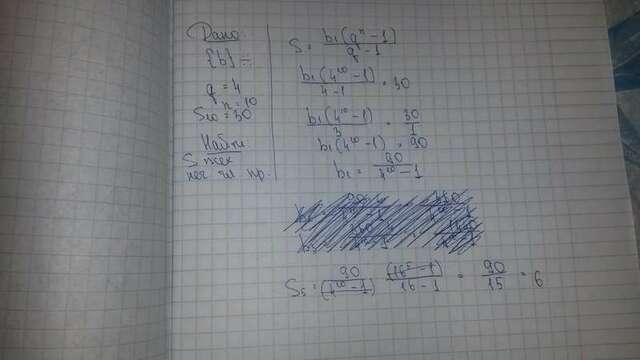 Дано
{b} ÷
q = 4
n = 10
S₁₀ = 30
Найти
S всех
неч чл. пр.
S = b₁(qⁿ-1)/q-1
b₁(4¹⁰-1)/4-1 = 30
b₁(4¹⁰-1)/3 = 30/1
b₁(4¹⁰-1) = 90
b₁ = 90/4¹⁰-1
S₅ = 90/(4¹⁰-1) (16⁵-1)/16-1 = 90/15 = 6